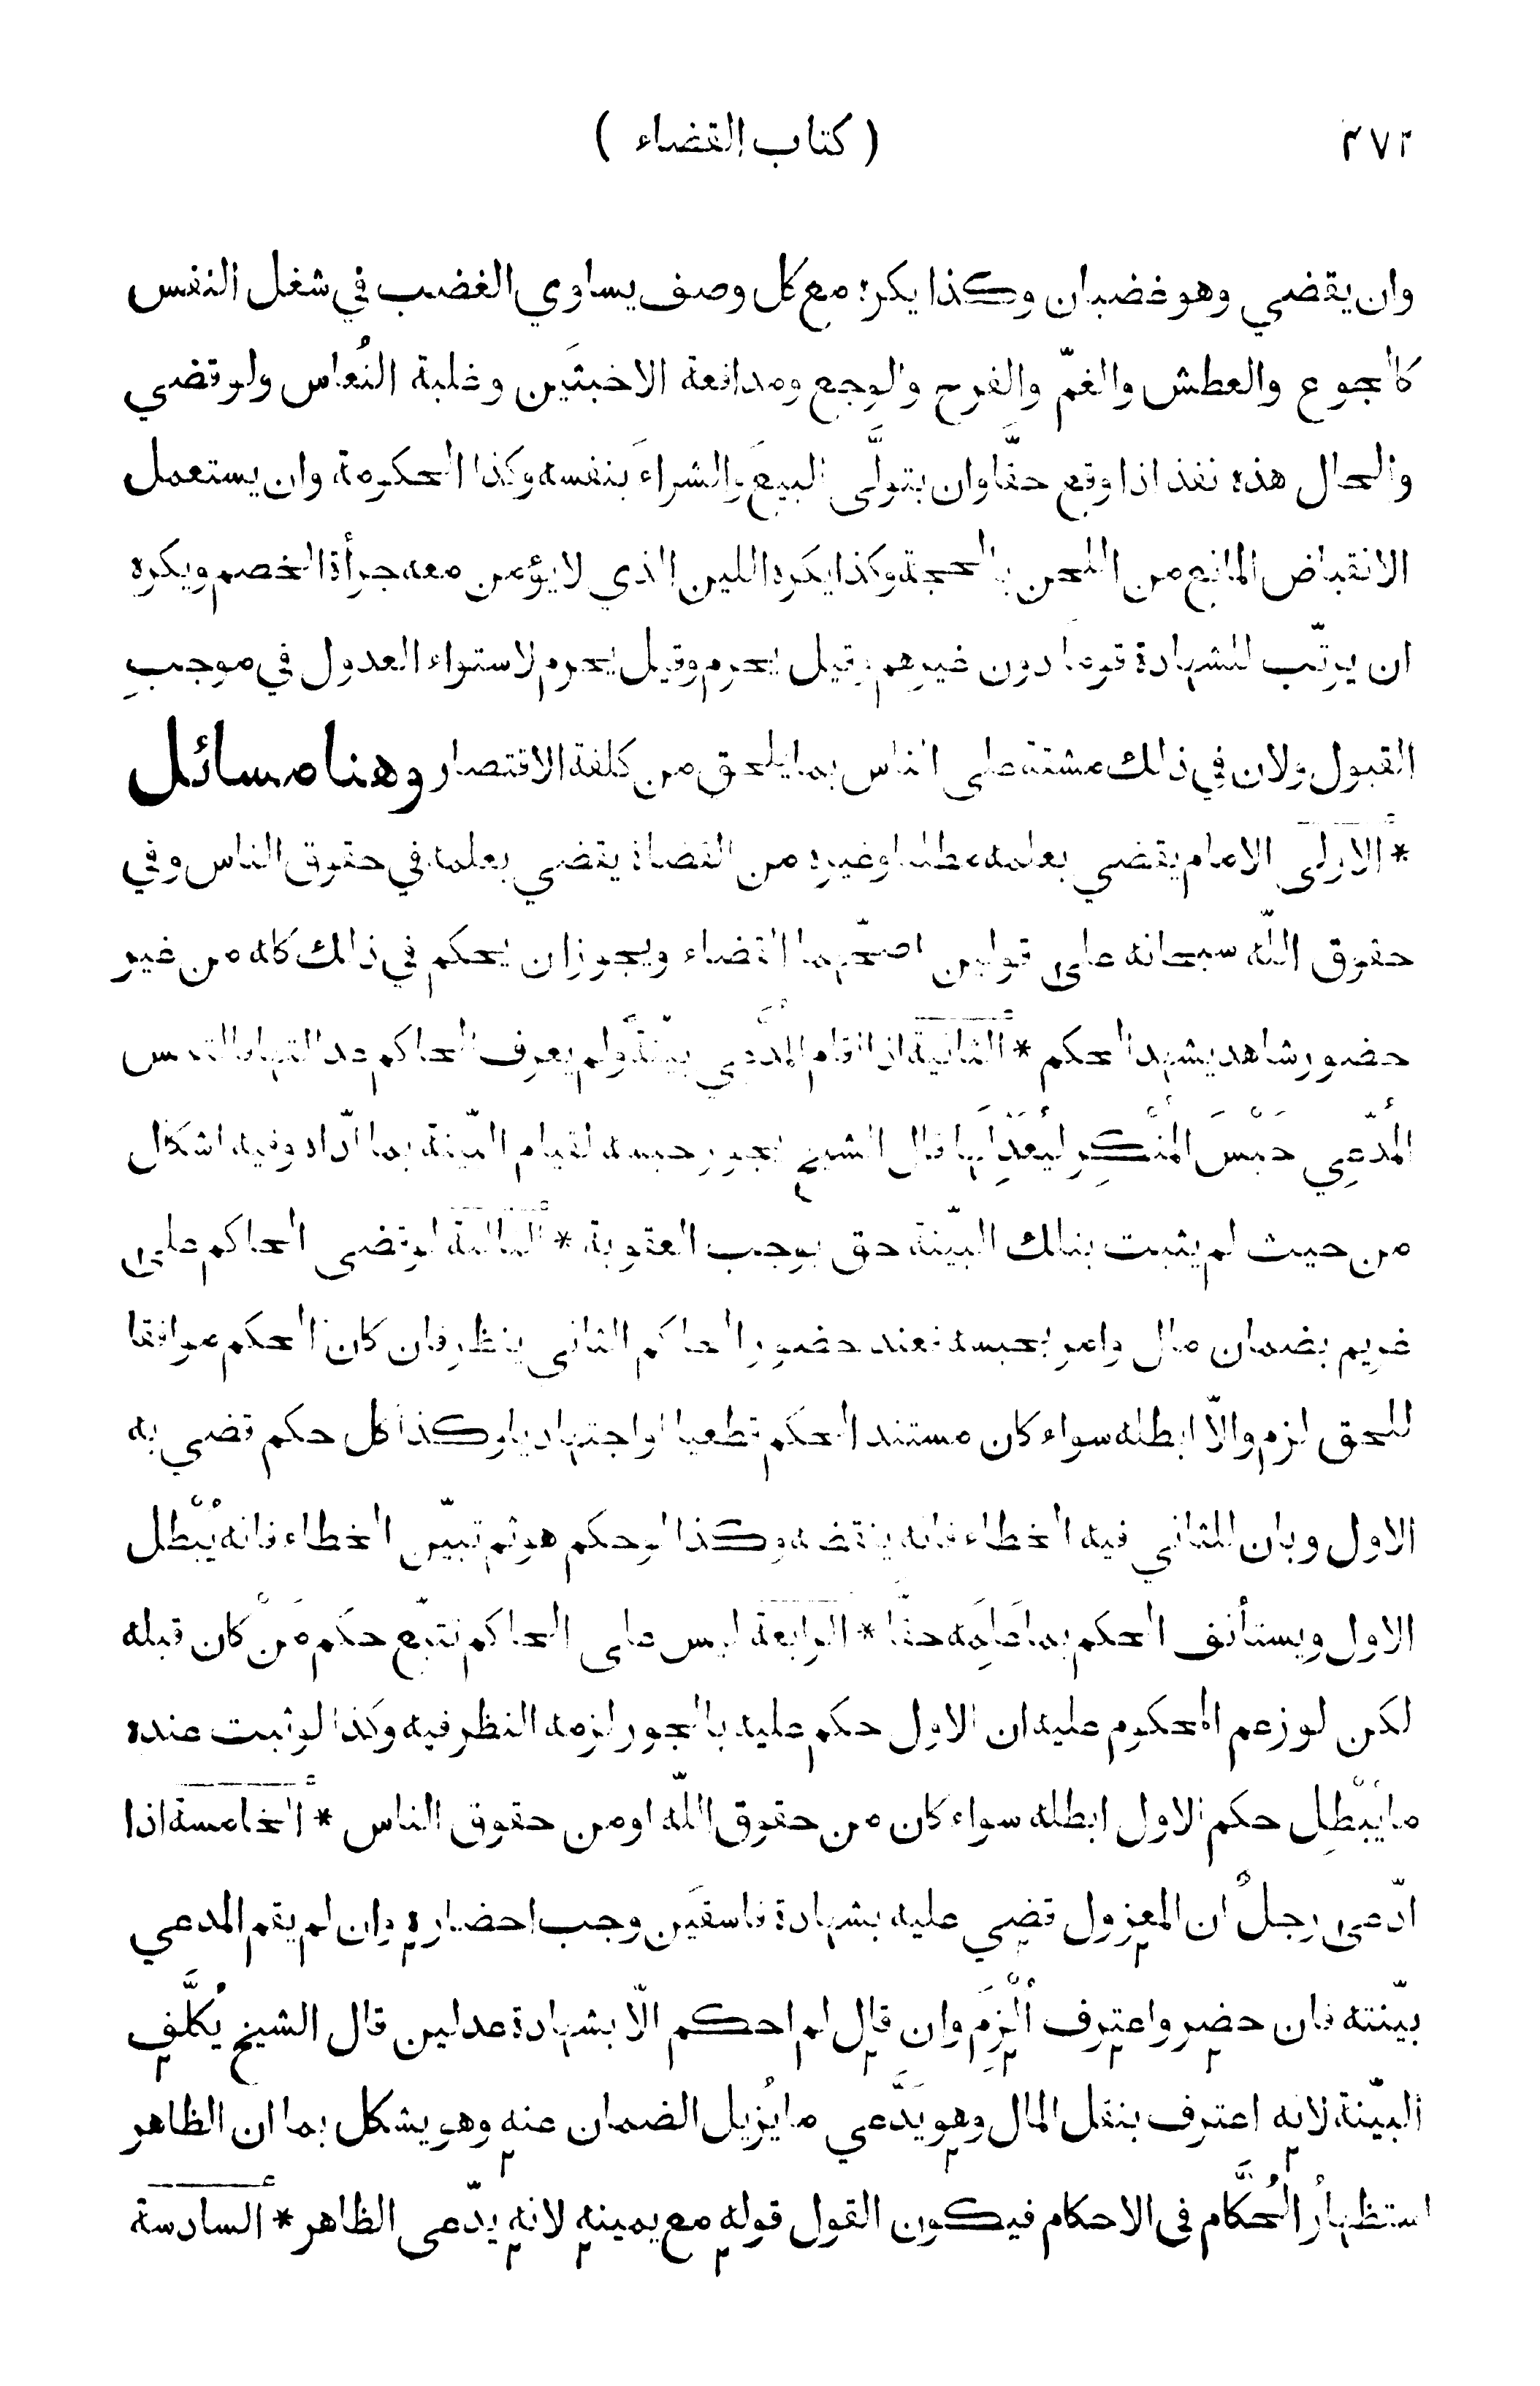 ٤٧٢ ( كتاب القضاء )
وان يقضي وهو غضبان وكذا يكره مع كل وصف يساوي الغضب في شغل النفس
كالجوع والعطش والغمّ والفرح والوجع ومدافعة الاخبثَين وغلبة النُعاس ولو قضي
والحال هذه نفذ اذا وقع حقّا وان يتولَّى البيعَ والشراءَ بنفسه وكذا الحكومة وان يستعمل
الانقباض المانع من اللحن بالحجة وكذا يكره اللين الذي لا يؤمن معه جرأة الخصم ويكره
ان يرتّب للشهادة قوما دون غيرهم وقيل يحرم لاستواء العدول في موجبِ
القبول ولان في ذلك مشقة على الناس بما يلحق من كلفة الاقتصار وهنا مسائل
* الاولى الامام يقضي بعلمه مطلقا وغيره من القضاة يقضي بعلمه في حقوق الناس وفي
حقوق اللّه سبحانه على قولين اصحّهما القضاء ويجوز ان يحكم في ذلك كله من غير
حضور شاهد يشهد الحكم * الثانية اذا اقام المُدَّعِي بيّنةً ولم يعرف الحاكم عدالتها فالتمس
المُدّعِي حَبْسَ المُنْكِرِ ليُعَدِّلَها قال الشيخ يجوز حبسه لقيام البيّنة بما ادّعاه وفيه اشكال
من حيث لم يثبت بتلك البيّنة حق يوجب العقوبة * الثالثة لو قضى الحاكم على
غريم بضمان مال وامر بحبسه فعند حضور الحاكم الثاني ينظر فان كان الحكم موافقا
للحق لزم والّا ابطله سواء كان مستند الحكم قطعيا او اجتهاديا وكذا كل حكم قضي به
الاول وبان للثاني فيه الخطاء فانه ينقضه وكذا لو حكم هو ثم تبيّن الخطاء فانه يُبْطل
الاول ويستأنف الحكم بما عَلِمَه حقّا * الرابعة ليس على الحاكم تتبّع حكم مَنْ كان قبله
لكن لو زعم المحكوم عليه ان الاول حكم عليه بالجور لزمه النظر فيه وكذا لو ثبت عنده
ما يُبْطِل حكم الاول ابطله سواء كان من حقوق اللّه او من حقوق الناس * الخامسة اذا
ادّعى رجلٌ ان المعزول قضي عليه بشهادة فاسقَين وجب احضاره وان لم يقم المدعي
بيّنته فان حضر واعترف أُلْزِمَ وان قال لم احكم الّا بشهادة عدلين قال الشيخ يُكلَّف
البيّنة لانه اعترف بنقل المال وهو يَدَّعي ما يُزيل الضمان عنه وهو يشكل بما انّ الظاهر
استظهارُ الحُكَّام في الاحكام فيكون القول قوله مع يمينه لانه يدّعى الظاهر * السادسة